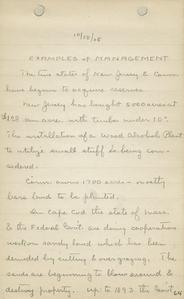 10/10/05
EXAMPLES of MANAGEMENT
The two states of New Jersey & Conn
have begun to acquire reserves
New Jersey has bought 5000 acres at
an acre, with timber under 10".
The installation of a Wood Alcohol Plant
to utilize small stuff is being con-
sidered.
Conn. owns 1700 acres - mostly
bare land to be planted.
On Cape Cod the state of Mass.
& the Federal Govt. are doing cooperative
work on sandy land which has been
denuded by cutting & overgrazing. The
sands are beginning to blow around &
destroying property. Up to 1893 the Gov't